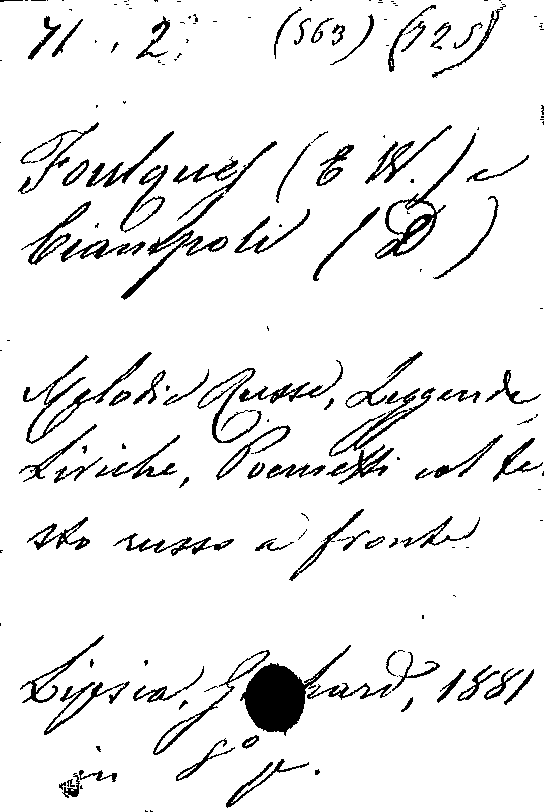 71 . 2. (563) (725)
Foulques (E W.) e
Ciampoli (D)
Melodie Russe, Leggende,
Liriche, Poemetti col te-
sto russo a fronte
Lipsia, G hard, 1881
in 8° p.